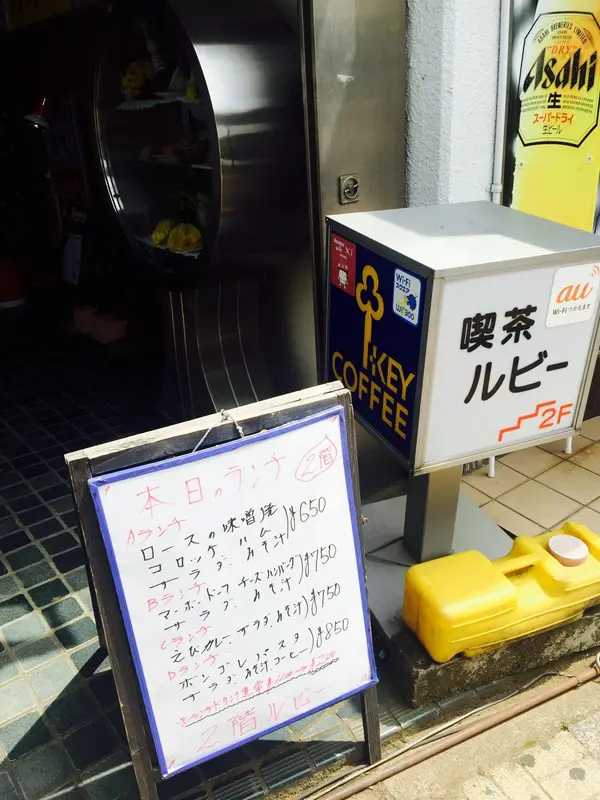 ASAHI BREWERIES LIMITED
"DRY"
Asahi
生
スーパードライ
生ビール
Wi-Fi
スクエア
Wi2 300
KEY
COFFEE
au
Wi-Fiつかえます
喫茶
ルビー
2F
本日のランチ
2階
Aランチ
ロースの味噌
コロッケ ハム
サラダ みそ汁 ¥650
Bランチ
マーボドーフ チーズハンバーグ
サラダ みそ汁 ¥750
Cランチ
えびカレー サラダ みそ汁 ¥750
Dランチ
ボンゴレパスタ
サラダ みそ汁 コーヒー ¥850
2階ルビー